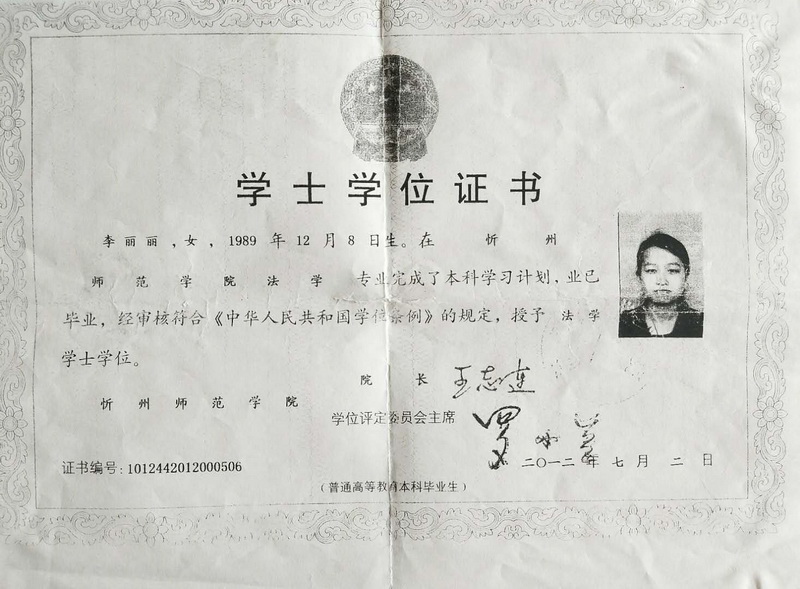 学士学位证书
李丽丽,女,1989年12月8日生。在忻州
师范学院法学专业完成了本科学习计划,业已
毕业,经审核符合《中华人民共和国学位条例》的规定,授予法学
学士学位。
院长 王志连
忻州师范学院
学位评定委员会主席
证书编号:1012442012000506
二〇一二年七月二日
(普通高等教育本科毕业生)